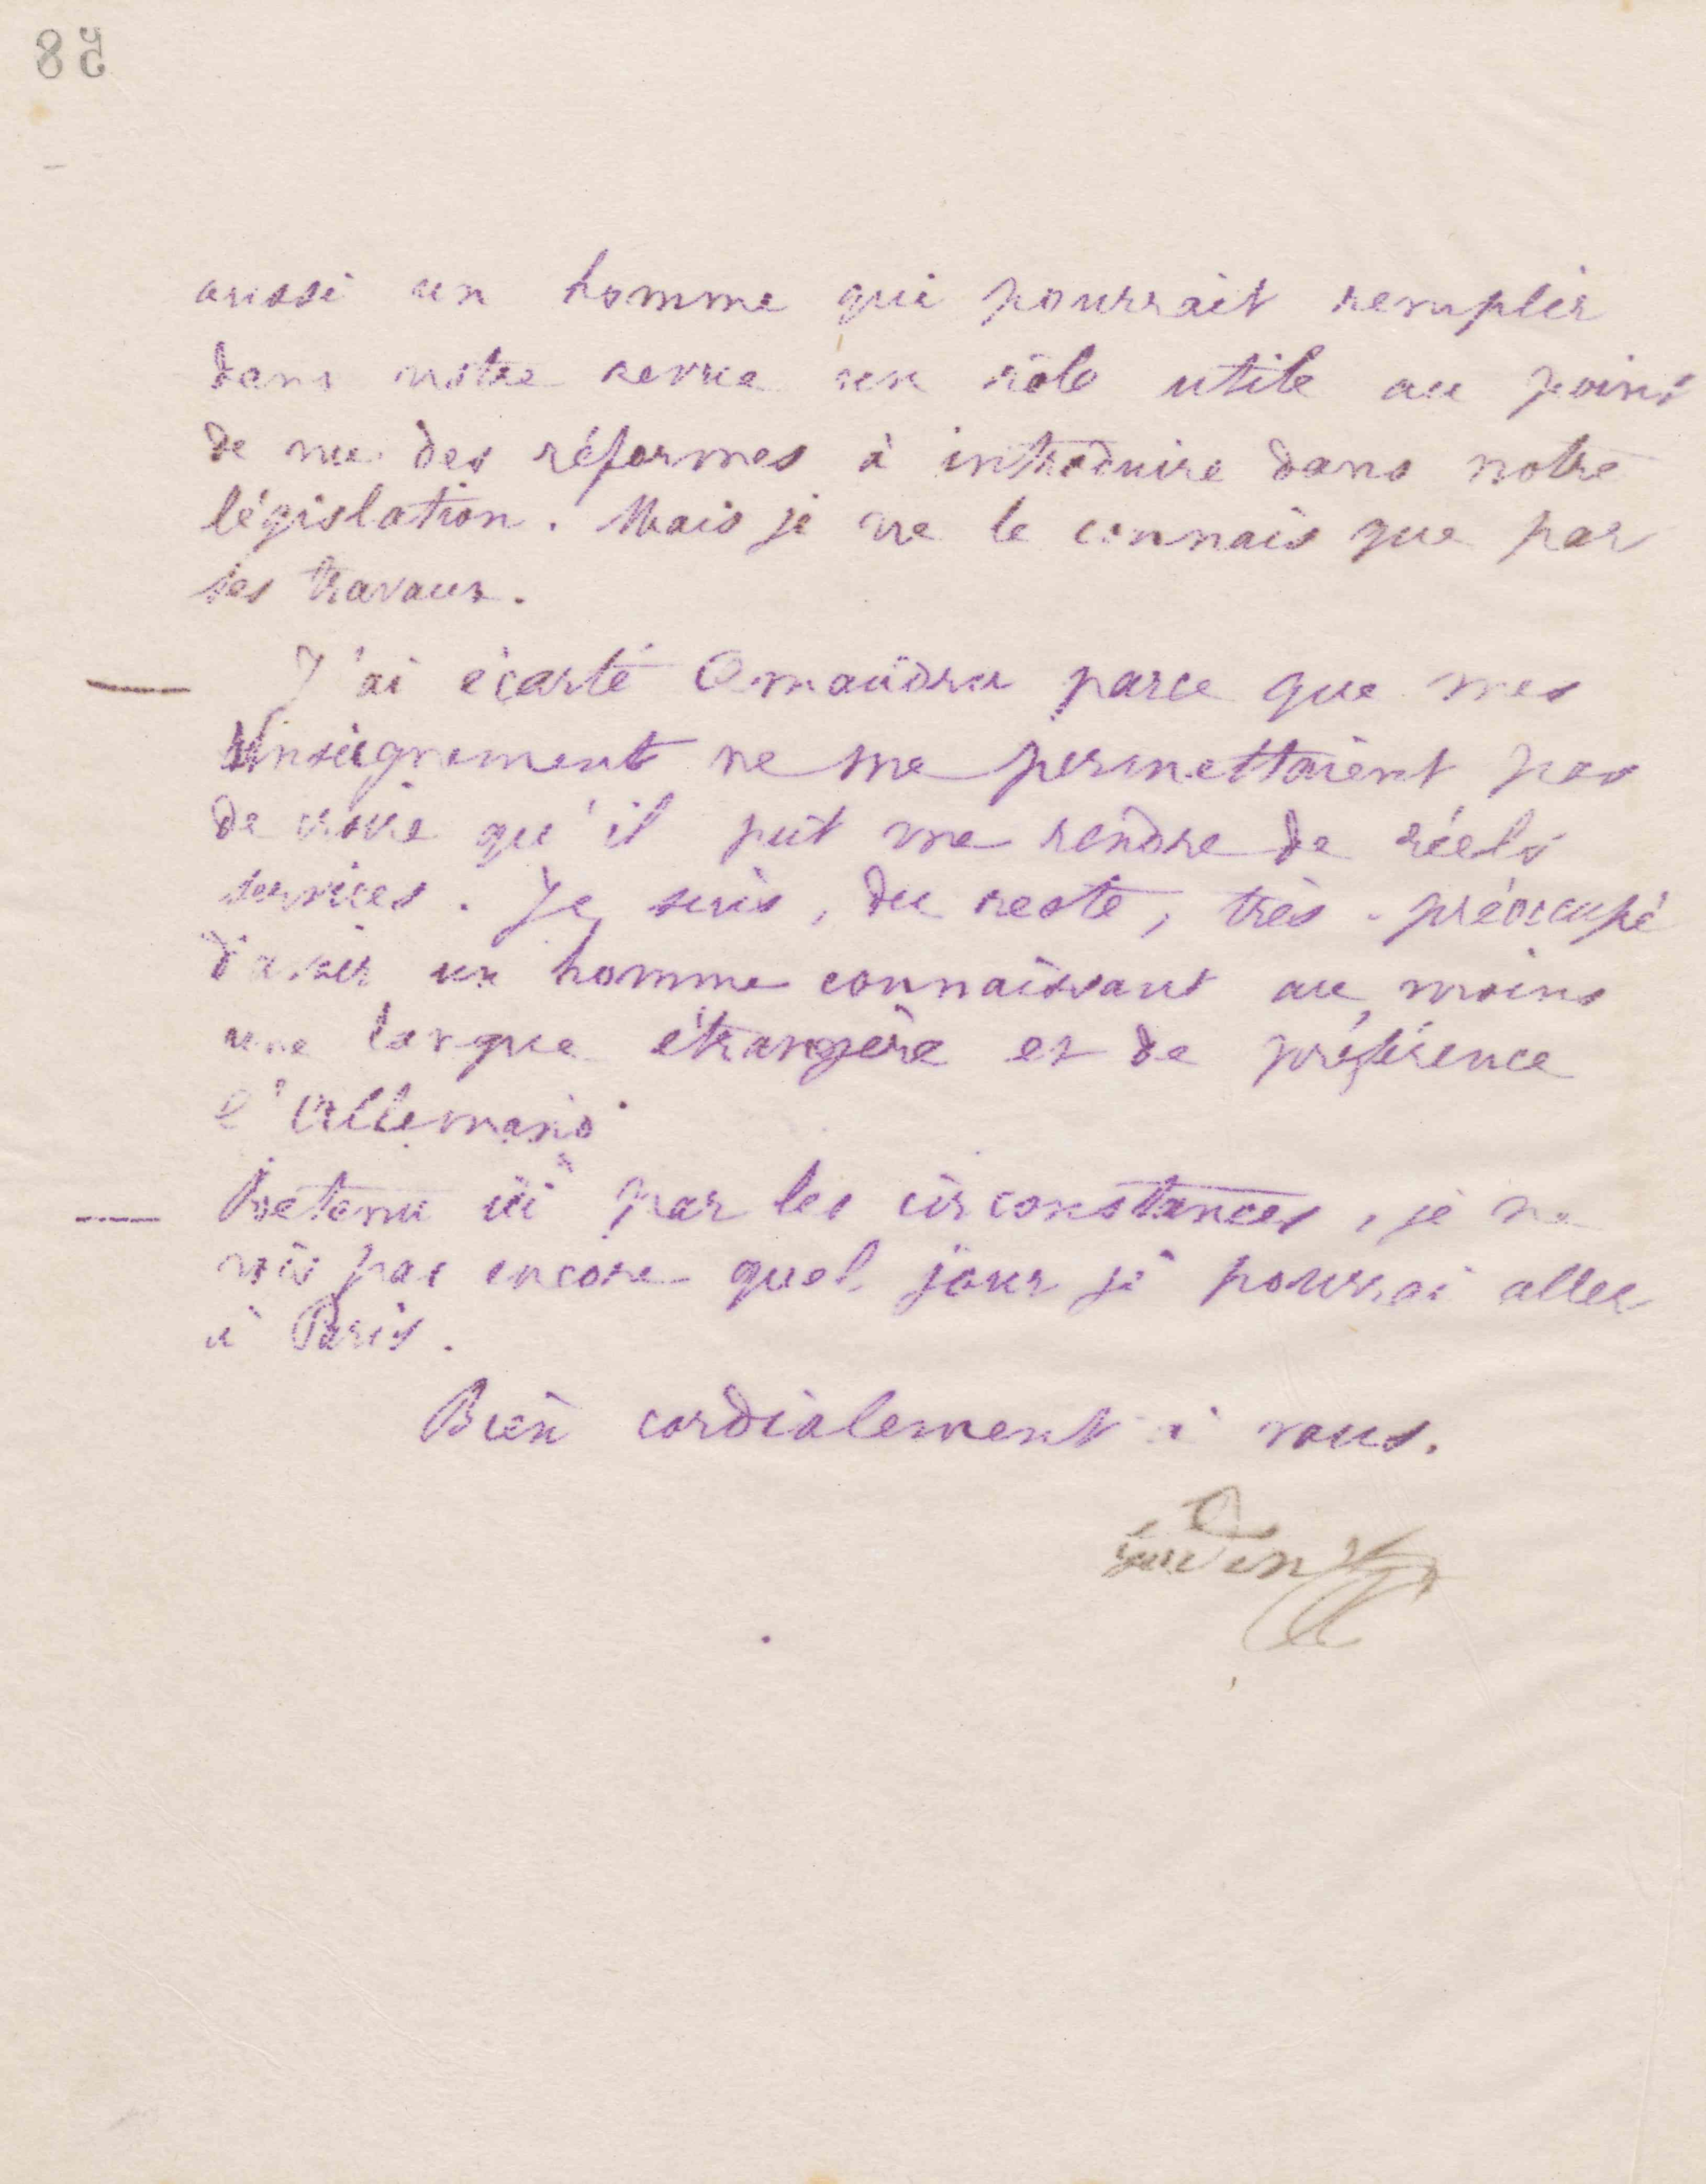 58
aussi un homme qui pourrait remplir
dans notre revue un rôle utile au point
de vue des réformes à introduire dans notre
législation. Mais je ne le connais que par
ses travaux.
— J'ai écarté parce que mes
renseignement ne me permettaient pas
de croire qu'il put me rendre de réels
services. Je suis, du reste, très préoccupé
d'avoir un homme connaissant au moins
une langue étrangère et de préférence
l'Allemand.
— Retenu ici par les circonstances, je ne
vois pas encore quel jour je pourrai aller
à Paris.
Bien cordialement à vous.
Godin